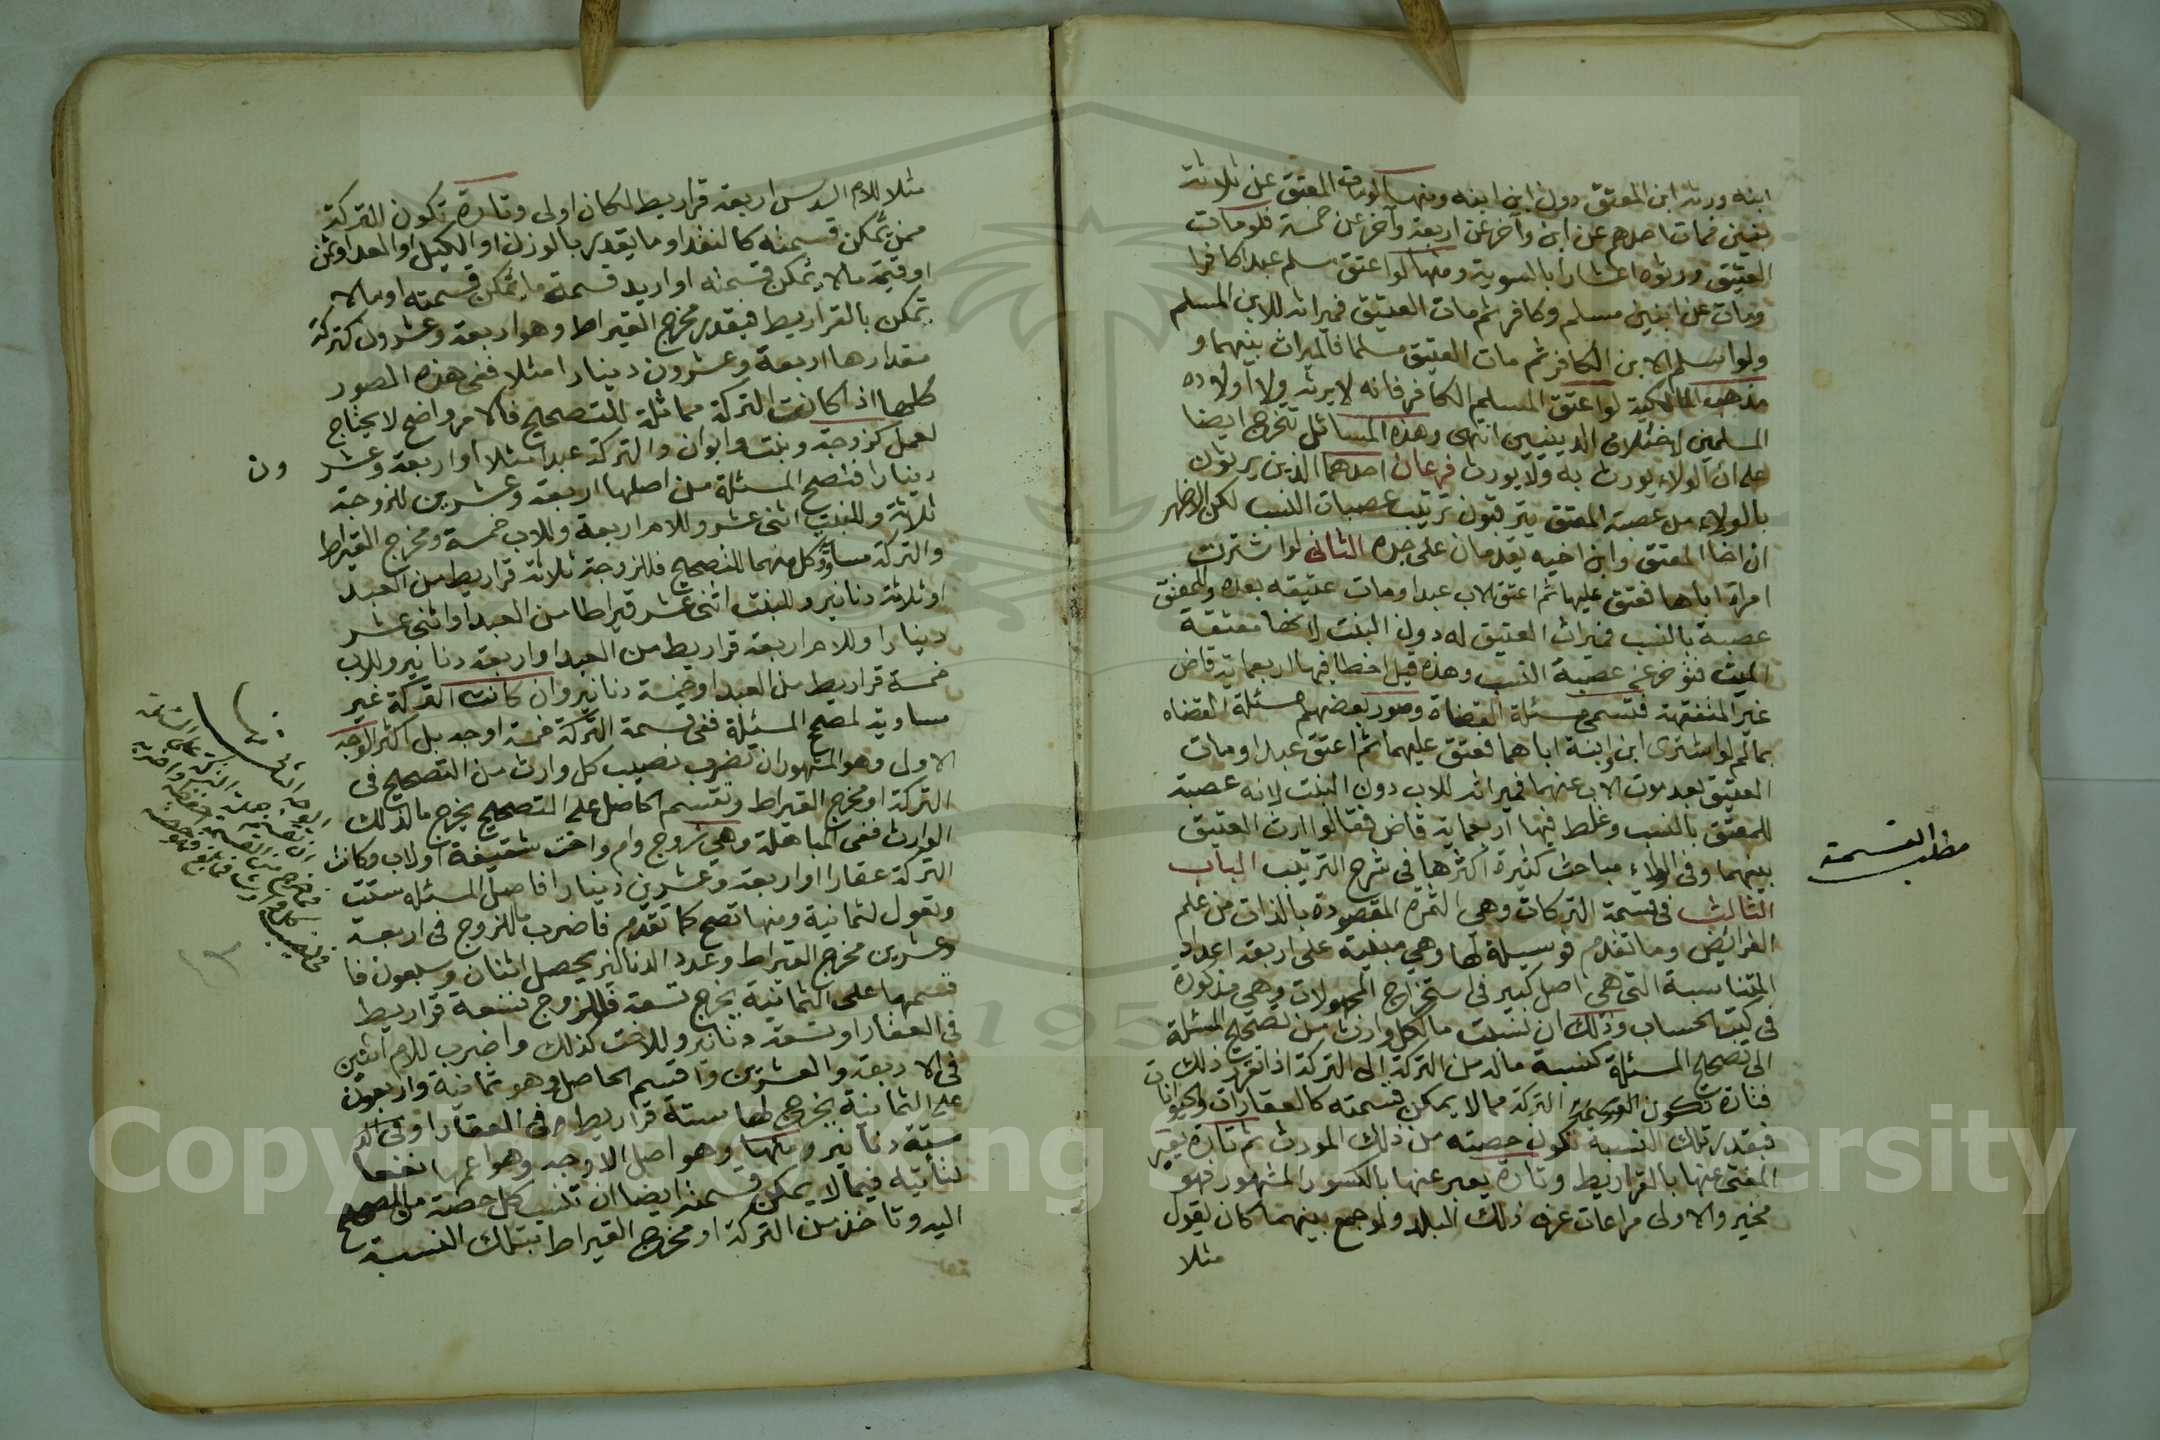 ابنه ورثه ابن المعتق دون ابن ابنه ومنها لو مات المعتق عن ثلاثة
بنين فمات احدهم عن ابن وآخر عن اربعة وآخر عن خمسة فلو مات
العتيق ورثوه اعشارا بالسوية ومنها لو اعتق مسلم عبدا كافرا
ومات عن ابنين مسلم وكافر ثم مات العتيق فميراثه للابن المسلم
ولو اسلم الابن الكافر ثم مات العتيق مسلما فالميراث بينهما و
مذهب المالكية لو اعتق المسلم الكافر فانه لا يرثه ولا اولاده
المسلمين لاختلاف الدينين انتهى وهذه المسائل تخرج ايضا
على ان الولاء يورث به ولا يورث فرعان احدهما الذين يرثون
بالولاء من عصبة المعتق يترتبون ترتيب عصبات النسب لكن الاظهر
ان اخا المعتق وابن اخيه يقدمان على جده الثانى لو اشترت
امراة اباها فعتق عليها ثم اعتق الاب عبدا ومات عتيقه بعده والمعتق
عصبة بالنسب فميراث العتيق له دون البنت لانها معتقة
الميت فتؤخر عن عصبة النسب وهذه قيل اخطا فيها اربعماية قاض
غير المتفقهة فتسمى مسئلة القضاة وصور بعضهم مسئلة القضاه
بمالم لو اشترى ابن وابنة اباهما فعتق عليهما ثم اعتق عبدا ومات
العتيق بعد موت الاب عنهما فميراثه للاب دون البنت لانه عصبة
للمعتق بالنسب وغلط فيها اربعماية قاض فقالوا ارث العتيق
بينهما وفى الولاء مباحث كثيرة اكثرها فى شرح الترتيب الباب
الثالث فى قسمة التركات وهى الثمرة المقصودة بالذات من علم
الفرائض وما تقدم فوسيلة لها وهى مبنية على اربعة اعداد
المتناسبة التى هى اصل كبير فى استخراج المجهولات وهى مذكورة
فى كتب الحساب وذلك ان نسبت ما لكل وارث من تصحيح المسئلة
الى تصحيح المسئلة كنسبة ماله من التركة الى التركة اذا تقرر ذلك
فتارة تكون التركة مما لا يمكن قسمته كالعقارات والحيوانات
فبقدر تلك النسبة تكون حصته من ذلك المورث ثم تارة يعبر
المفتى عنها بالقراريط وتارة يعبر عنها بالكسور المشهورة فهو
مخير والاولى مراعات عرف ذلك البلد ولو جمع بينهما كان يقول
مثلا
مطلب القسمة
مثلا للام السدس اربعة قراريط لكان اولى وتارة تكون التركة
ممن تمكن قسمته كالنقد او ما يقدر بالوزن او الكيل او العد او ثمن
او قيمة مالا يمكن قسمته او اريد قسمة ما يمكن قسمته او مالا
تمكن بالقراريط فيقدر مخرج القيراط وهو اربعة وعشرون كتركة
مقدارها اربعة وعشرون دينارا مثلا ففى هذه الصور
كلها اذا كانت التركة مماثلة للتصحيح فالامر واضح لا يحتاج
لعمل كزوجة وبنت وابوان والتركة عبدا مثلا او اربعة وعشر
ون
دينارا فتصح المسئلة من اصلها اربعة وعشرين للزوجة
ثلاثة وللبنت اثنى عشر وللام اربعة وللاب خمسة ومخرج القيراط
والتركة مساوٍ كل منهما للتصحيح فللزوجة ثلاثة قراريط من العبد
او ثلاثة دنانير وللبنت اثنى عشر قيراطا من العبد او اثنى عشر
دينارا وللام اربعة قراريط من العبد او اربعة دنانير وللاب
خمسة قراريط من العبد او خمسة دنانير وان كانت التركة غير
مساوية لمصح المسئلة ففى قسمة التركة خمسة اوجه بل اكثر الوجه
الاول وهو المشهور ان تضرب نصيب كل وارث من التصحيح فى
التركة او مخرج القيراط وتقسم الحاصل على التصحيح يخرج ما لذلك
الوارث ففى المباهلة وهى زوج وام واخت شقيقة او لاب وكانت
التركة عقارا او اربعة وعشرين دينارا فاصل المسئلة ستت
وتعول لثمانية ومنها تصح كما تقدم فاضرب للزوج فى اربعة
وعشرين مخرج القيراط وعدد الدنانير يحصل اثنان وسبعون فا
قسمها على الثمانية يخرج تسعة فللزوج تسعة قراريط
فى العقار او تسعة دنانير وللاخت كذلك واضرب للام اثنين
فى الاربعة والعشرين واقسم الحاصل وهو ثمانية واربعون
على الثمانية يخرج لها ستة قراريط فى العقار او فى
ستة دنانير ومنها وهو اصل الاوجه وهو اعمها نفعا
لتأتيه فيما لا يمكن قسمته ايضا ان تنسب كل حصة من المصحح
اليه وتاخذ من التركة او مخرج القيراط بتلك النسبة
Copyright © King Saud University
195